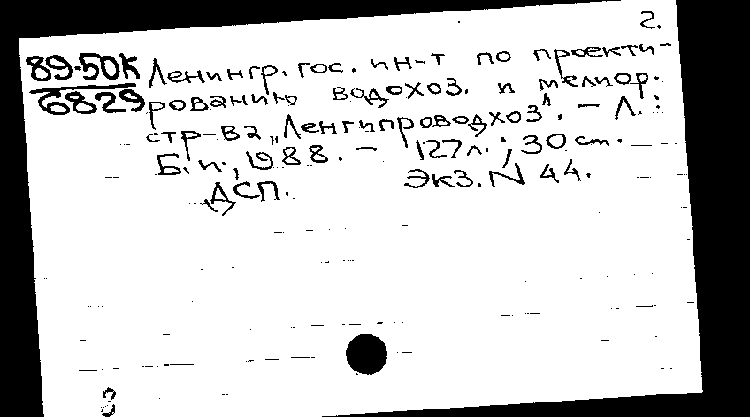 2.
89-50К
6829
Ленингр. гос. ин-т по проекти-
рованию водохоз. и мелиор.
стр-ва „Ленгипроводхоз". - Л.:
Б.и., 1988. - 127л.; 30 cm.
ДСП. Экз. N 44.